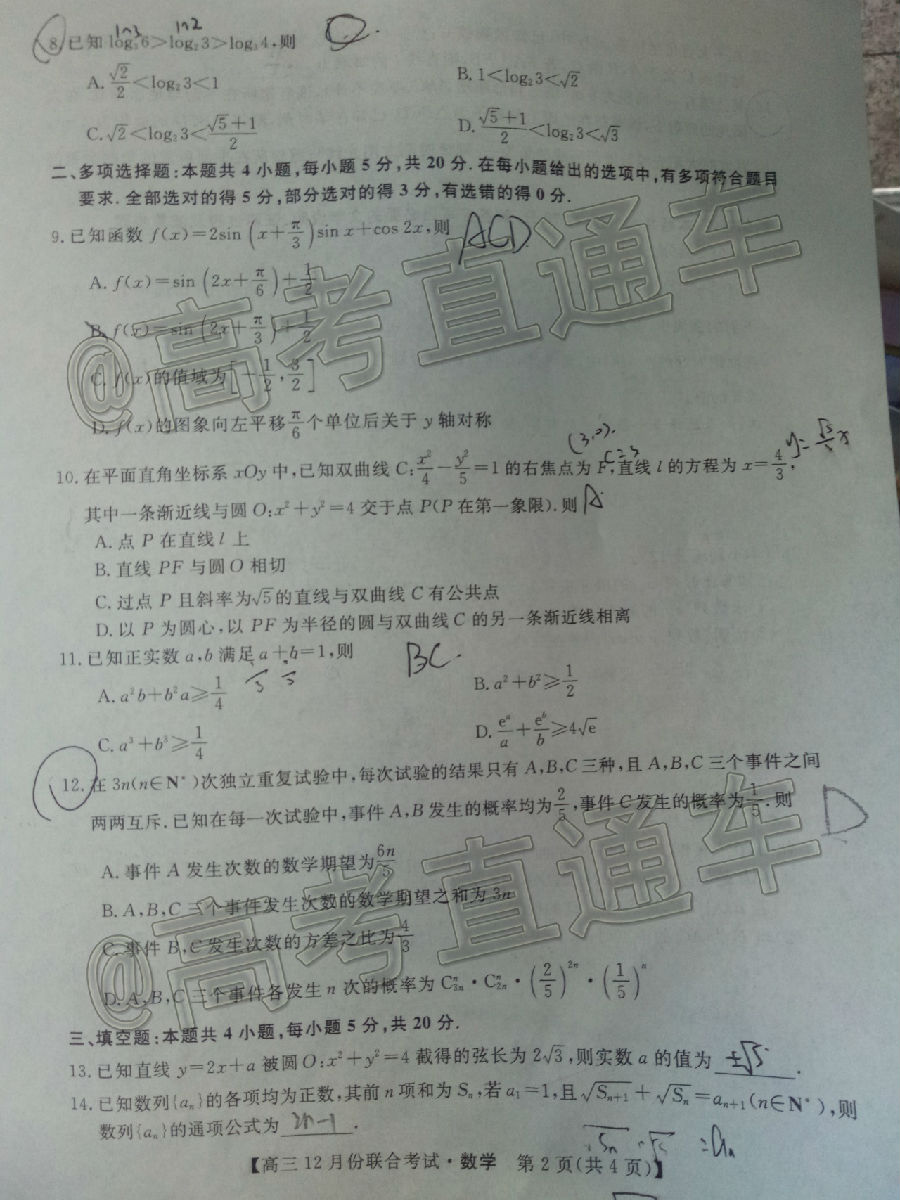 8. 已知 log₃6>log₂3>log₃4,则
A. √2/2<log₂3<1 B. 1<log₂3<√2
C. √2<log₂3<(√5+1)/2 D. (√5+1)/2<log₂3<√3
二、多项选择题:本题共 4 小题,每小题 5 分,共 20 分. 在每小题给出的选项中,有多项符合题目
要求. 全部选对的得 5 分,部分选对的得 3 分,有选错的得 0 分.
9. 已知函数 f(x)=2sin(x+π/3)sin x+cos 2x,则 ACD
A. f(x)=sin(2x+π/6)+1/2
B. f(x)=sin(2x+π/3)+1/2
C. f(x)的值域为[-1/2,3/2]
D. f(x)的图象向左平移π/6个单位后关于 y 轴对称
(3,0) c=3
10. 在平面直角坐标系 xOy 中,已知双曲线 C:x²/4-y²/5=1 的右焦点为 F,直线 l 的方程为 x=4/3,
其中一条渐近线与圆 O:x²+y²=4 交于点 P(P 在第一象限). 则 A
A. 点 P 在直线 l 上
B. 直线 PF 与圆 O 相切
C. 过点 P 且斜率为√5的直线与双曲线 C 有公共点
D. 以 P 为圆心,以 PF 为半径的圆与双曲线 C 的另一条渐近线相离
11. 已知正实数 a,b 满足 a+b=1,则 BC.
A. a²b+b²a≥1/4 B. a²+b²≥1/2
C. a³+b³≥1/4 D. eᵃ/a+eᵇ/b≥4√e
12. 在 3n(n∈N*)次独立重复试验中,每次试验的结果只有 A,B,C 三种,且 A,B,C 三个事件之间
两两互斥. 已知在每一次试验中,事件 A,B 发生的概率均为2/5,事件 C 发生的概率为1/5. 则 D
A. 事件 A 发生次数的数学期望为6n/5
B. A,B,C 三个事件发生次数的数学期望之和为 3n
C. 事件 B,C 发生次数的方差之比为4/3
D. A,B,C 三个事件各发生 n 次的概率为 C₃ₙⁿ·C₂ₙⁿ·(2/5)²ⁿ·(1/5)ⁿ
三、填空题:本题共 4 小题,每小题 5 分,共 20 分.
13. 已知直线 y=2x+a 被圆 O:x²+y²=4 截得的弦长为 2√3,则实数 a 的值为 ±√5.
14. 已知数列{aₙ}的各项均为正数,其前 n 项和为 Sₙ,若 a₁=1,且 √Sₙ₊₁+√Sₙ=aₙ₊₁(n∈N*),则
数列{aₙ}的通项公式为 2n-1.
【高三 12 月份联合考试·数学 第 2 页(共 4 页)】
@高考直通车
@高考直通车